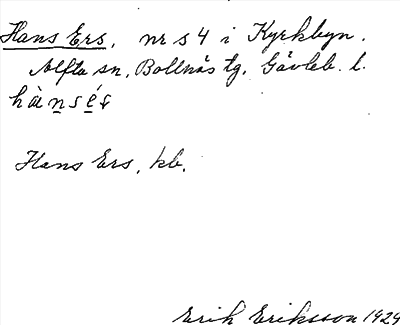 Hans Ers, nr s 4 i Kyrkbyn.
Alfta sn, Bollnäs tg. Gävleb. l.
hànsés
Hans Ers, kb.
Erik Eriksson 1924